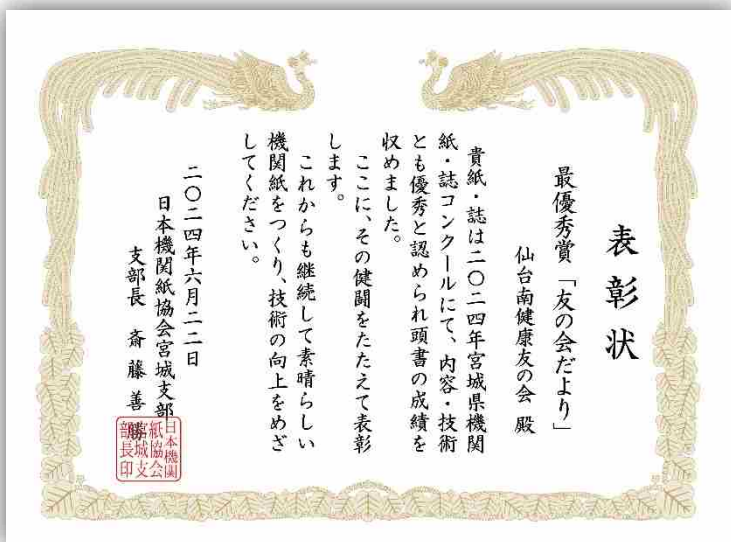 表彰状
最優秀賞「友の会だより」
仙台南健康友の会 殿
貴紙・誌は二〇二四年宮城県機関
紙・誌コンクールにて、内容・技術
とも優秀と認められ頭書の成績を
収めました。
ここに、その健闘をたたえて表彰
します。
これからも継続して素晴らしい
機関紙をつくり、技術の向上をめざ
してください。
二〇二四年六月二二日
日本機関紙協会宮城支部
支部長 斎藤善勝
日本機関
紙協会
宮城支
部長印